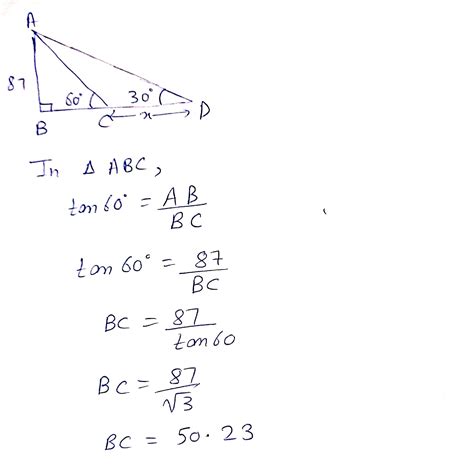 A
87
60°
30°
B
C
x
D
In Δ ABC,
tan60° = AB/BC
tan 60° = 87/BC
BC = 87/tan60
BC = 87/√3
BC = 50.23